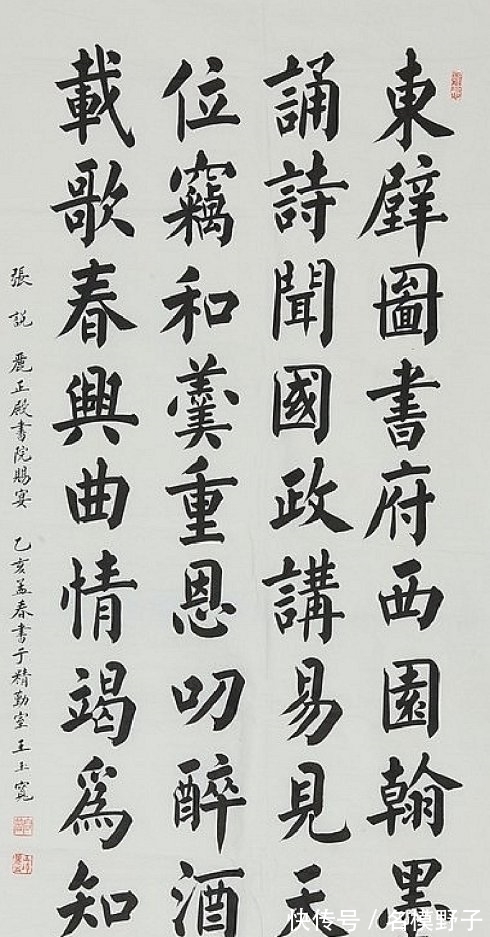 東壁圖書府西園翰墨
誦詩聞國政講易見天
位竊和羹重恩叨醉酒
載歌春興曲情竭爲知
張說 麗正殿書院賜宴 乙亥孟春書于精勤室 王士寬
快传号 / 名模野子